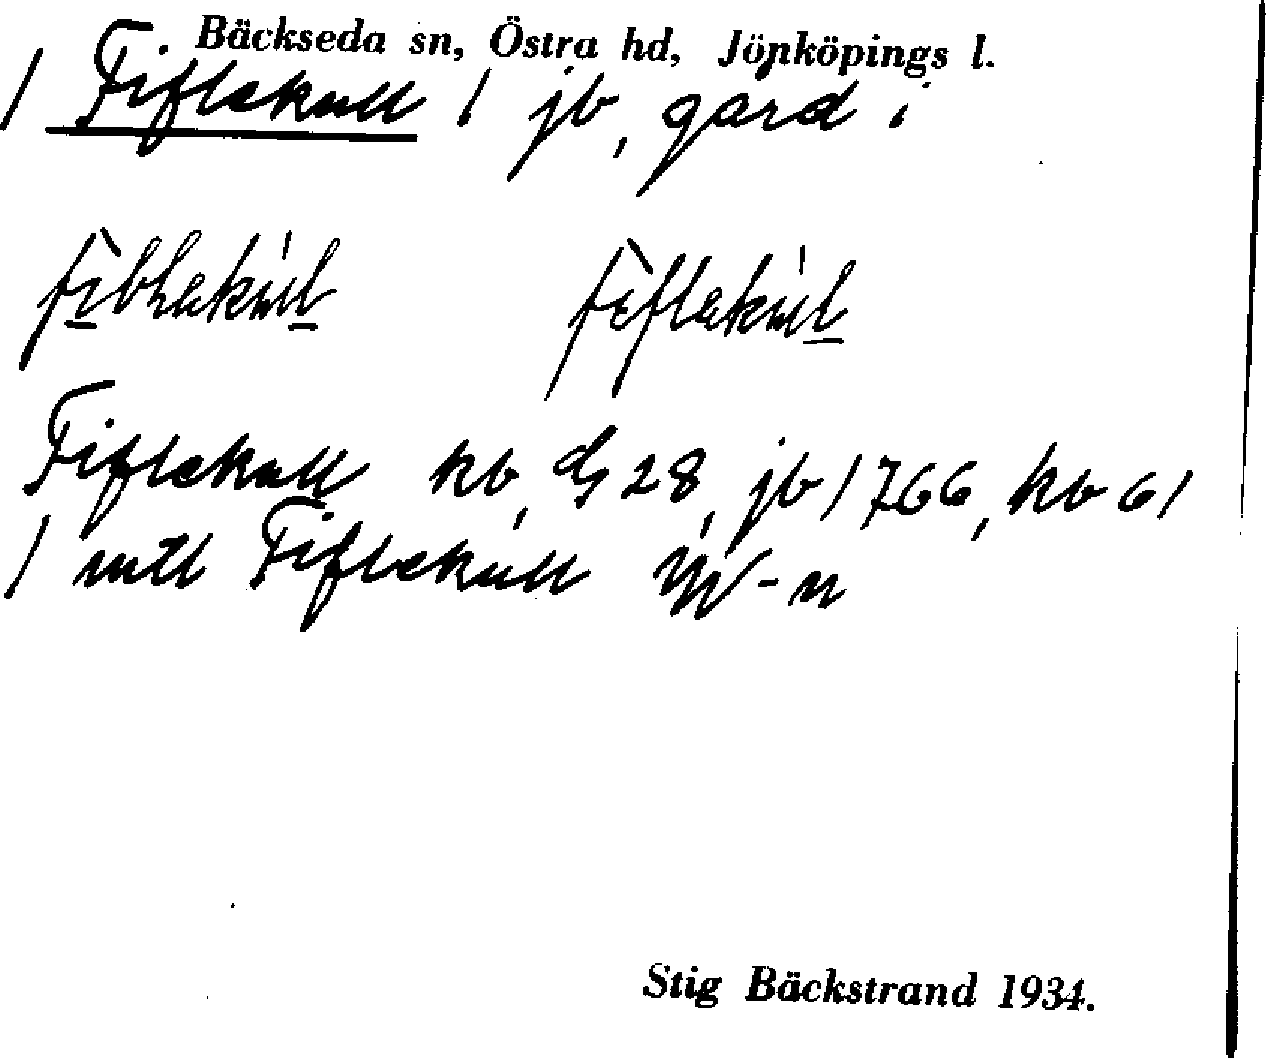 Bäckseda sn, Östra hd, Jönköpings l.
/ Fiflekull / jb, gård i
fìblekúll fìflekúll
Fiflekull kb, ds 28, jb 1766, kb 61
/ mtl Fiflekull
Stig Bäckstrand 1934.